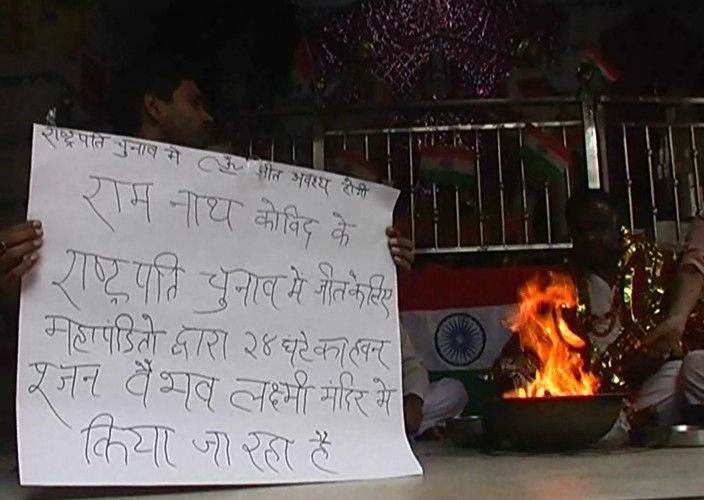 राष्ट्रपति चुनाव मे जीत अवश्य होगी
राम नाथ कोविद के
राष्ट्रपति चुनाव मे जीत के लिए
महापंडितो द्वारा २४ घंटे का हवन
वैभव लक्ष्मी मंदिर मे
किया जा रहा है